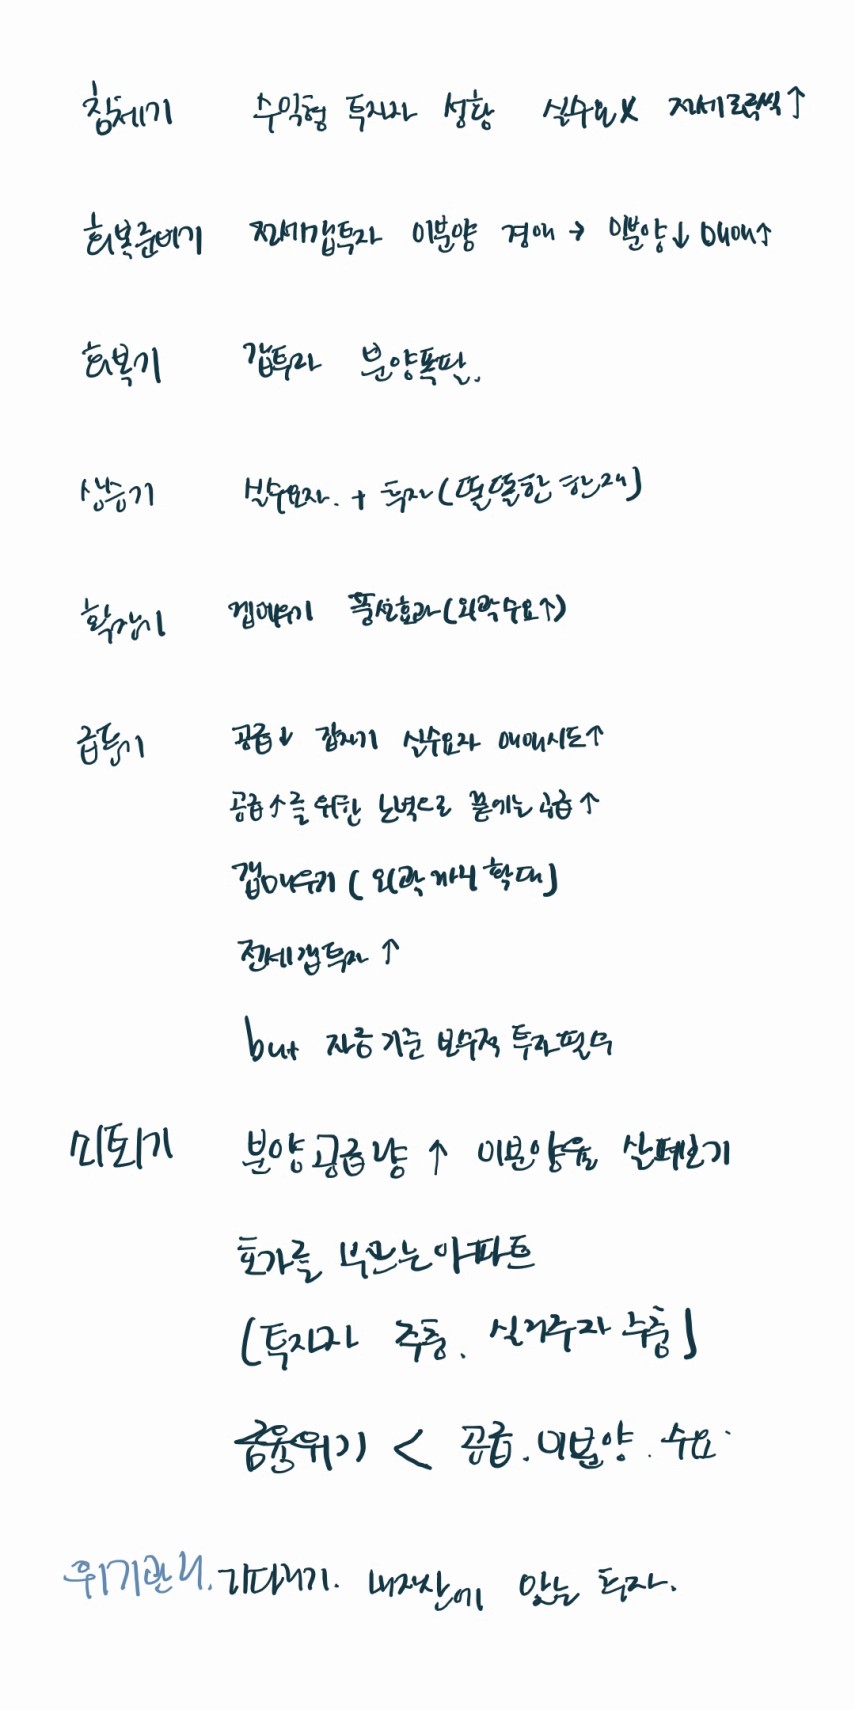 침체기 수익형 투자자 성황 실수요X 전세 ↑
회복준비기 전세갭투자 미분양 경매 → 미분양↓ 매매↑
회복기 갭투자 분양폭발.
상승기 실수요자. + 투자(똘똘한 한채)
확장기 갭메우기 풍선효과(외곽수요↑)
급등기 공급↓ 갑자기 실수요자 매매시도↑
공급↑를 위한 노력으로 끝에는 공급↑
갭메우기 (외곽까지 확대)
전세갭투자↑
but 자동기준 보수적 투자필수
쇠퇴기 분양공급량↑ 미분양율 살펴보기
호가를 부르는 아파트
(투자자 주춤. 실거주자 주춤)
금융위기 < 공급. 미분양. 수요
위기관리. 기다리기. 내자산에 맞는 투자.